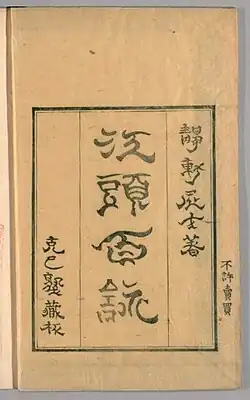 不許賣買
靜軒居士著
江頭百詠
克己塾藏板